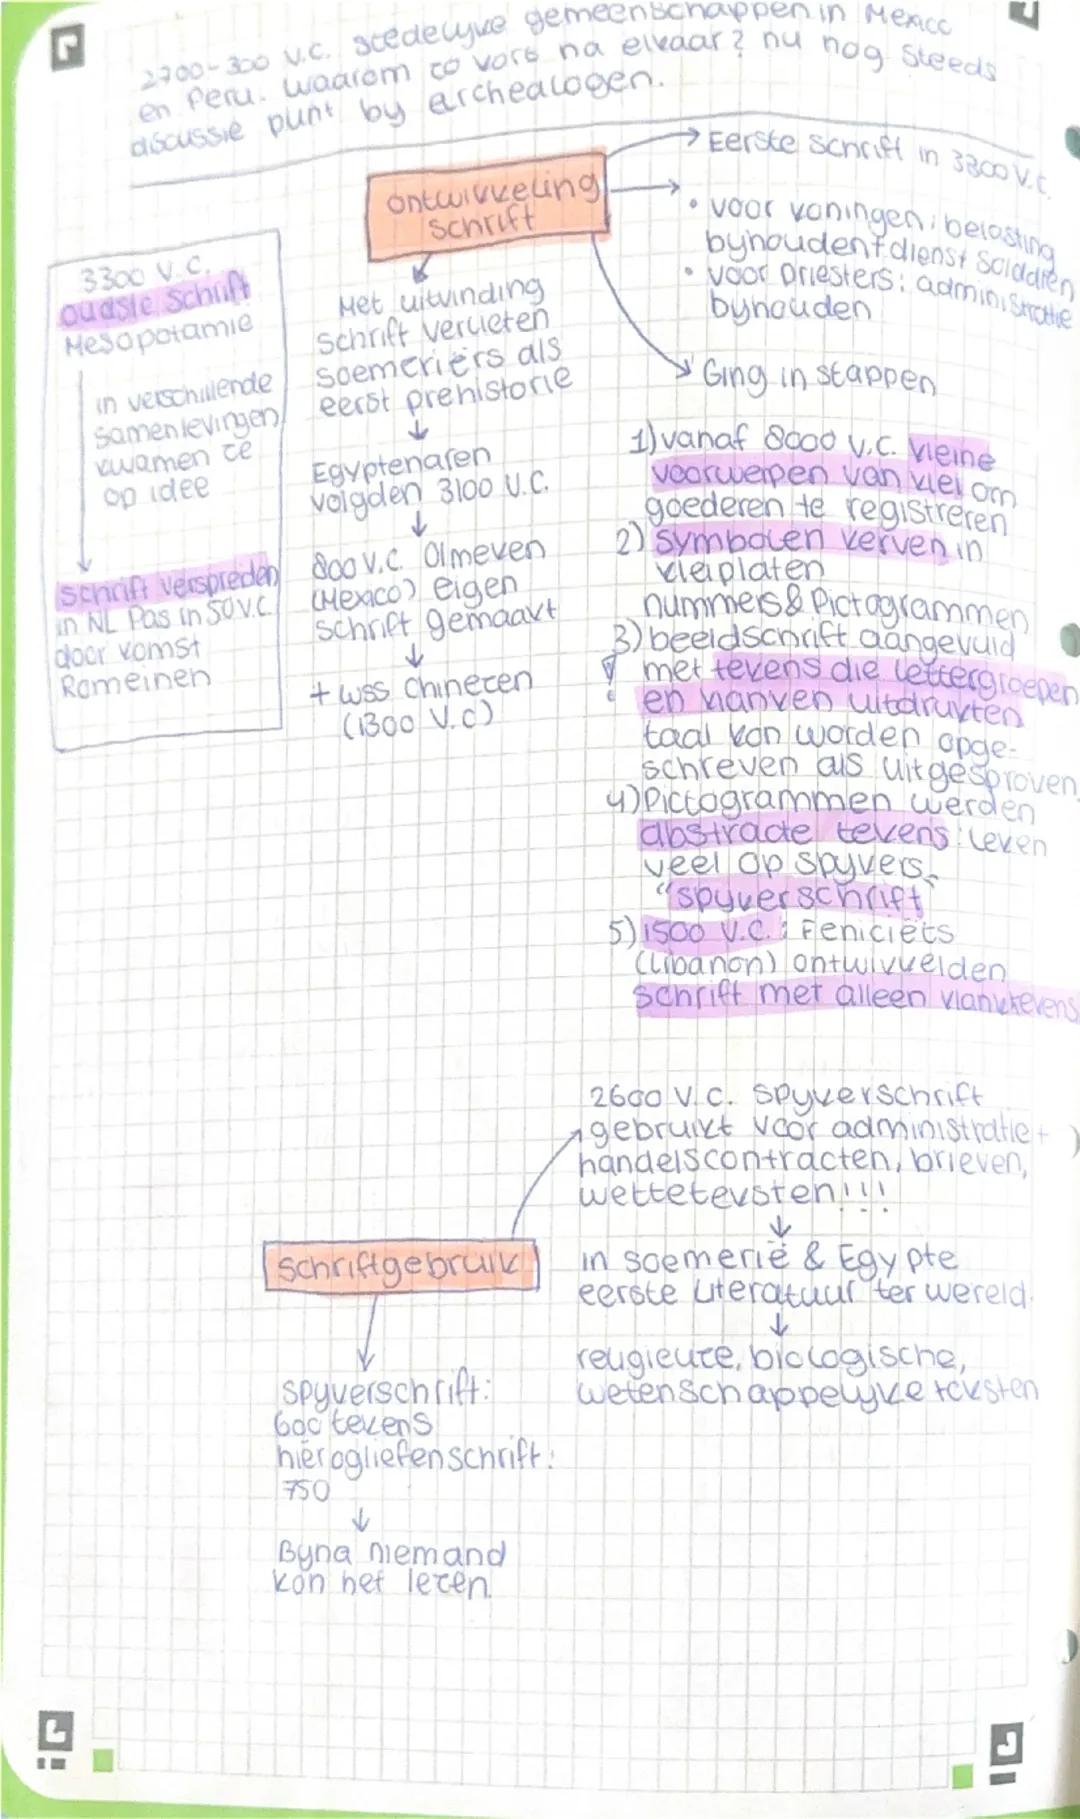 2700-300 v.c. stedelijke gemeenschappen in Mexico
en Peru. waarom zo vaag na elkaar? nu nog steeds
discussie punt by archealogen.
ontwikkeling
schrift
→ Eerste schrift in 3300 v.c.
• voor koningen: belasting
byhouden + dienst Soldaten
• voor priesters: administratie
byhouden
Ging in stappen
3300 v.c.
oudste schrift
Mesopotamie
in verschillende
samenlevingen
kwamen ze
op idee
schrift verspreden
in NL Pas in 50 v.c.
door komst
Romeinen
Met uitvinding
schrift verlieten
soemeriërs als
eerst prehistorie
↓
Egyptenaren
volgden 3100 v.c.
↓
800 v.c. Olmeken
(Mexico) eigen
schrift gemaakt
↓
+ wss Chinezen
(1300 v.c)
1) vanaf 8000 v.c. kleine
voorwerpen van klei om
goederen te registreren
2) symbolen kerven in
kleiplaten
nummers & Pictogrammen
3) beeldschrift aangevuld
! met tekens die lettergroepen
en klanken uitdrukten
taal kon worden opge-
schreven als uitgesproken.
4) Pictogrammen werden
abstracte tekens: leken
veel op spykers
"spykerschrift
5) 1500 v.c.: Feniciërs
(Libanon) ontwikkelden
schrift met alleen klanktekens
2600 v.c. spykerschrift
gebruikt voor administratie +
handelscontracten, brieven,
wetteteksten!!!
↓
in soemerië & Egypte
eerste literatuur ter wereld.
↓
religieuze, biologische,
wetenschappelyke teksten
schriftgebruik
spykerschrift:
600 tekens
hiërogliefenschrift:
750
↓
Byna niemand
kon het lezen.